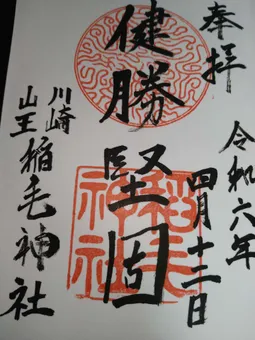 奉拝
令和六年
四月十二日
健勝堅固
川崎
山王稲毛神社
稲毛神社